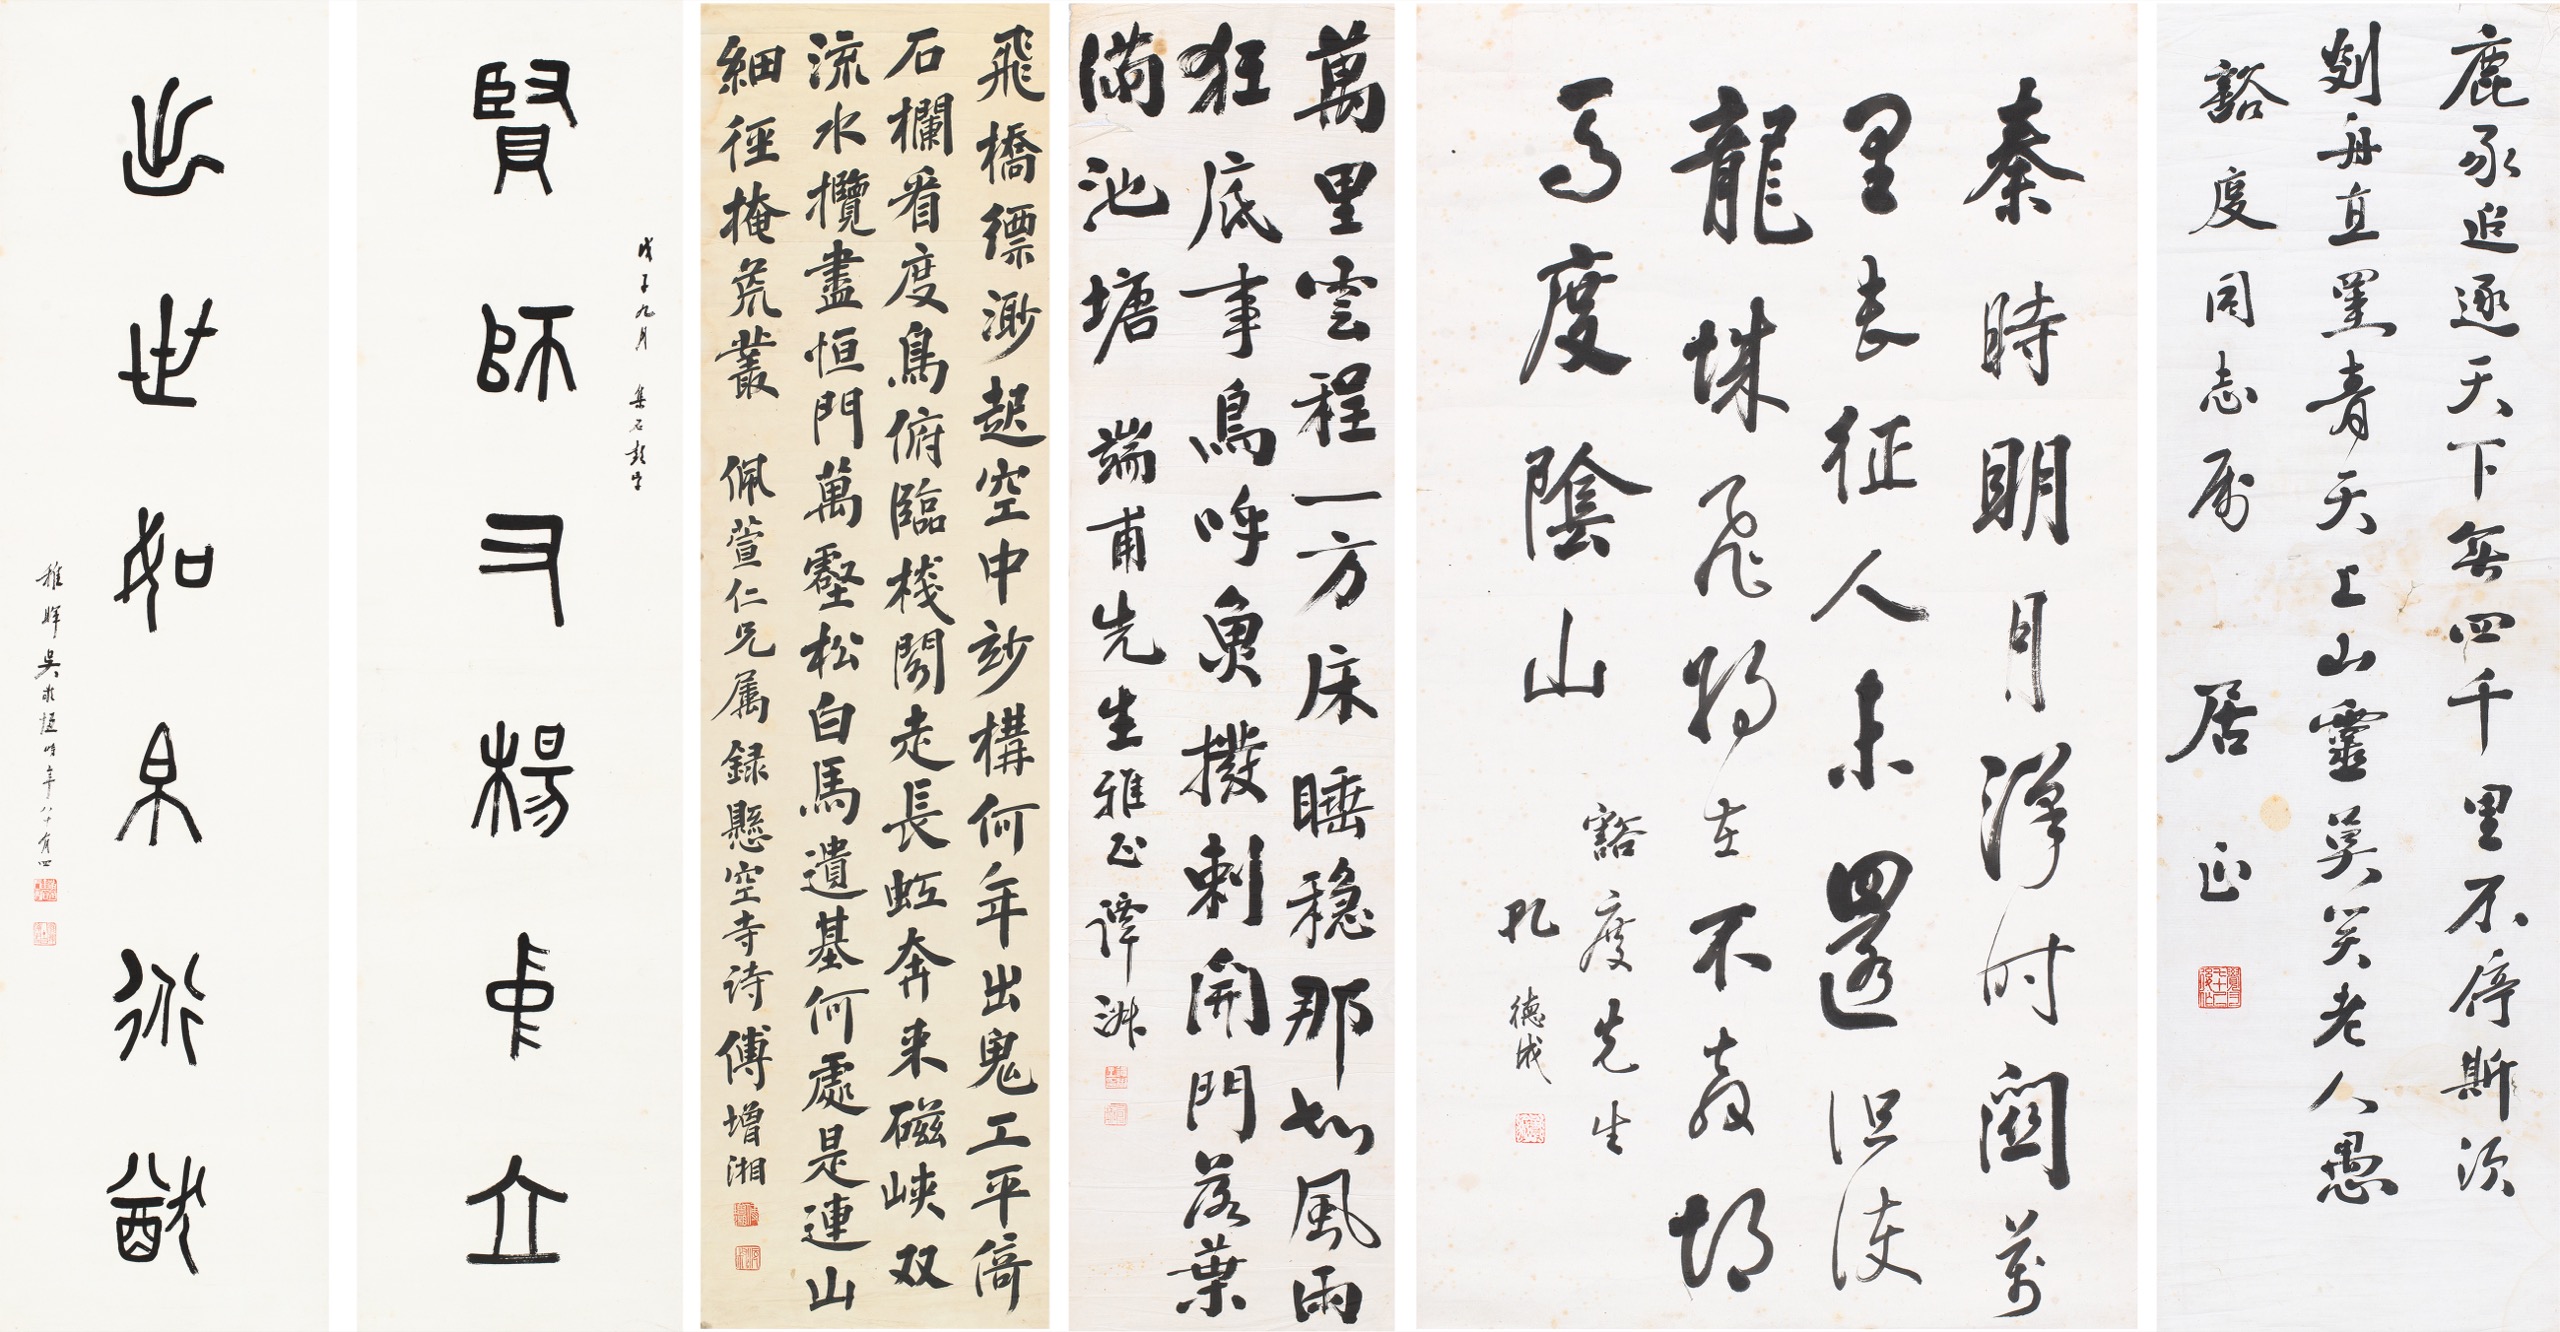 鹿豕追逐天下無四千里不停斯須
剡舟直罣青天上山靈莫笑老人愚
豁度同志属 居正
秦時明月漢時關萬
里長征人未還但使
龍城飛將在不教胡
馬度陰山
豁度先生
孔德成
萬里雲程一方床睡穩那知風雨
狂底事鳥呼魚撥剌開門落葉
滿池塘 端甫先生雅正 譚
飛橋縹渺起空中妙構何年出鬼工平倚
石欄看度鳥俯臨棧閣走長虹奔来磁峽双
流水攬盡恒門萬壑松白馬遺基何處是連山
細徑掩荒叢 佩萱仁兄属録懸空寺诗 傅增湘
戊子九月 集石鼓字
賢師又楊中立
世如
稚暉吳敬恆時年八十有四